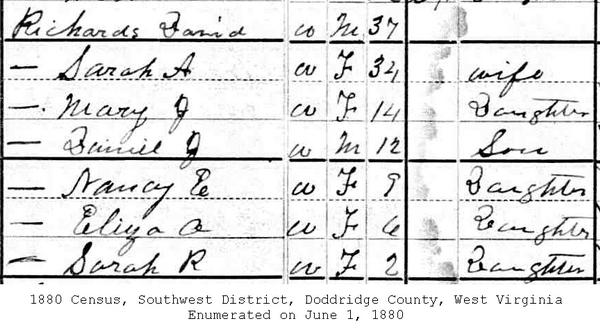 Richards David W M 37
— Sarah A W F 34 wife
— Mary J W F 14 Daughter
— Daniel J W M 12 Son
— Nancy E W F 9 Daughter
— Eliza A W F 6 Daughter
— Sarah R W F 2 Daughter
1880 Census, Southwest District, Doddridge County, West Virginia
Enumerated on June 1, 1880